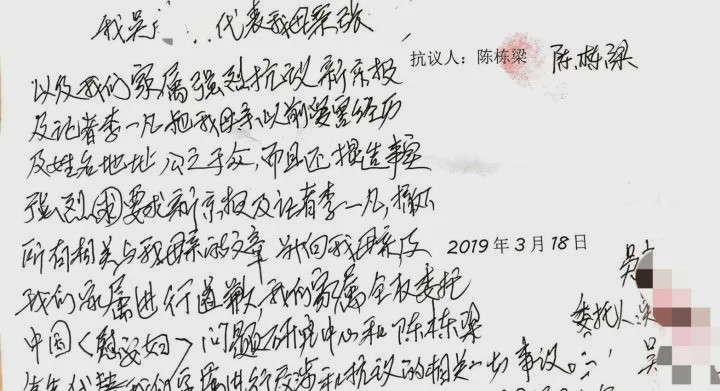 我吴 代表我母亲张
抗议人：陈栋梁 陈栋梁
以及我们家属强烈抗议新京报
及记者李一凡把我母亲以前受害经历
及姓名地址公之于众，而且还捏造事实
强烈要求新京报及记者李一凡，撤下
所有相关与我母亲的文章 并向我母亲及
2019年3月18日
我们家属进行道歉，我们家属全权委托
吴
中国〈慰安妇〉问题研究中心和陈栋梁
委托人 吴
我们家属进行交涉和抗议的相关一切事议。
吴